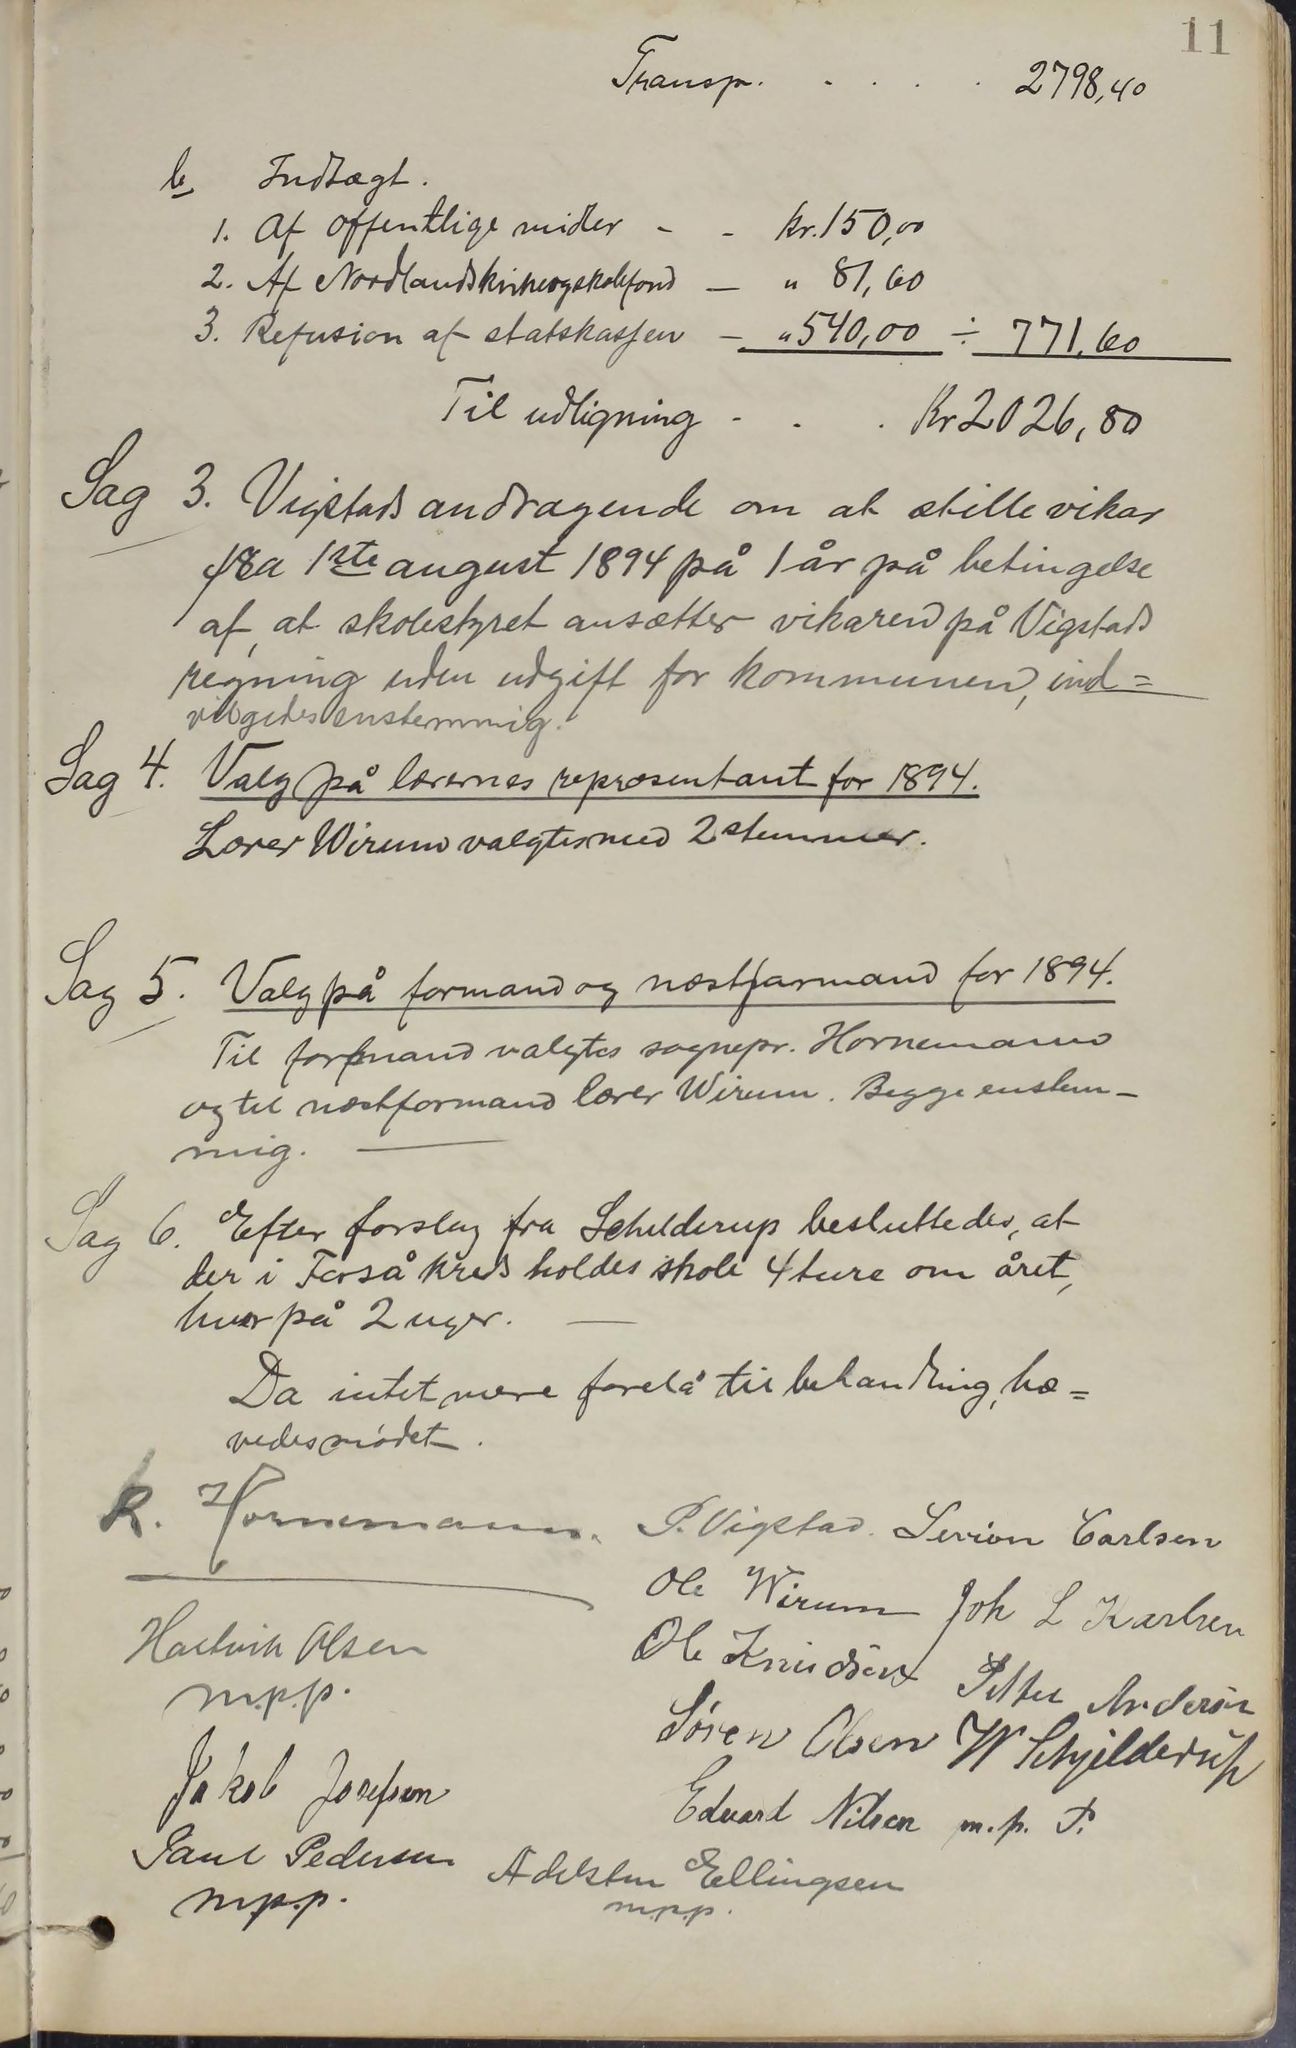 11
Transp. . . . . 2798,40
b, Indtægt.
1. Af offentlige midler - - kr. 150,00
2. Af Nordlands kirke og skolefond — " 81,60
3. Refusion af statskassen — " 540,00 ÷ 771,60
Til udligning - . . Kr 2026,80
Sag 3. Vigstads andragende om at stille vikar
fra 1ste august 1894 på 1 år på betingelse
af, at skolestyret ansætter vikaren på Vigstads
regning uden udgift for kommunen, ind=
vilgedes enstemmig.
Sag 4. Valg på lærernes repræsentant for 1894.
Lærer Wirum valgtes med 2 stemmer.
Sag 5. Valg på formand og næstformand for 1894.
Til formand valgtes sognepr. Hornemann
og til næstformand lærer Wirum. Begge enstem-
mig. —
Sag 6. Efter forslag fra Schelderup besluttedes, at
der i Forså kreds holdes skole 4 ture om året,
hver på 2 uger. —
Da intet mere forelå til behandling, hæ=
vedes mødet.
K. Hornemann. P. Vigstad. Serion Carlsen
Ole Wirum Joh L Karlsen
Hartvik Olsen
m.p.p.
Ole Knudsen Petter Andersen
Søren Olsen W Schjelderup
Jakob Josefsen
Edvard Nilsen m.p.P.
Paul Pedersen
m.p.p.
Adelsten Ellingsen
m.p.p.